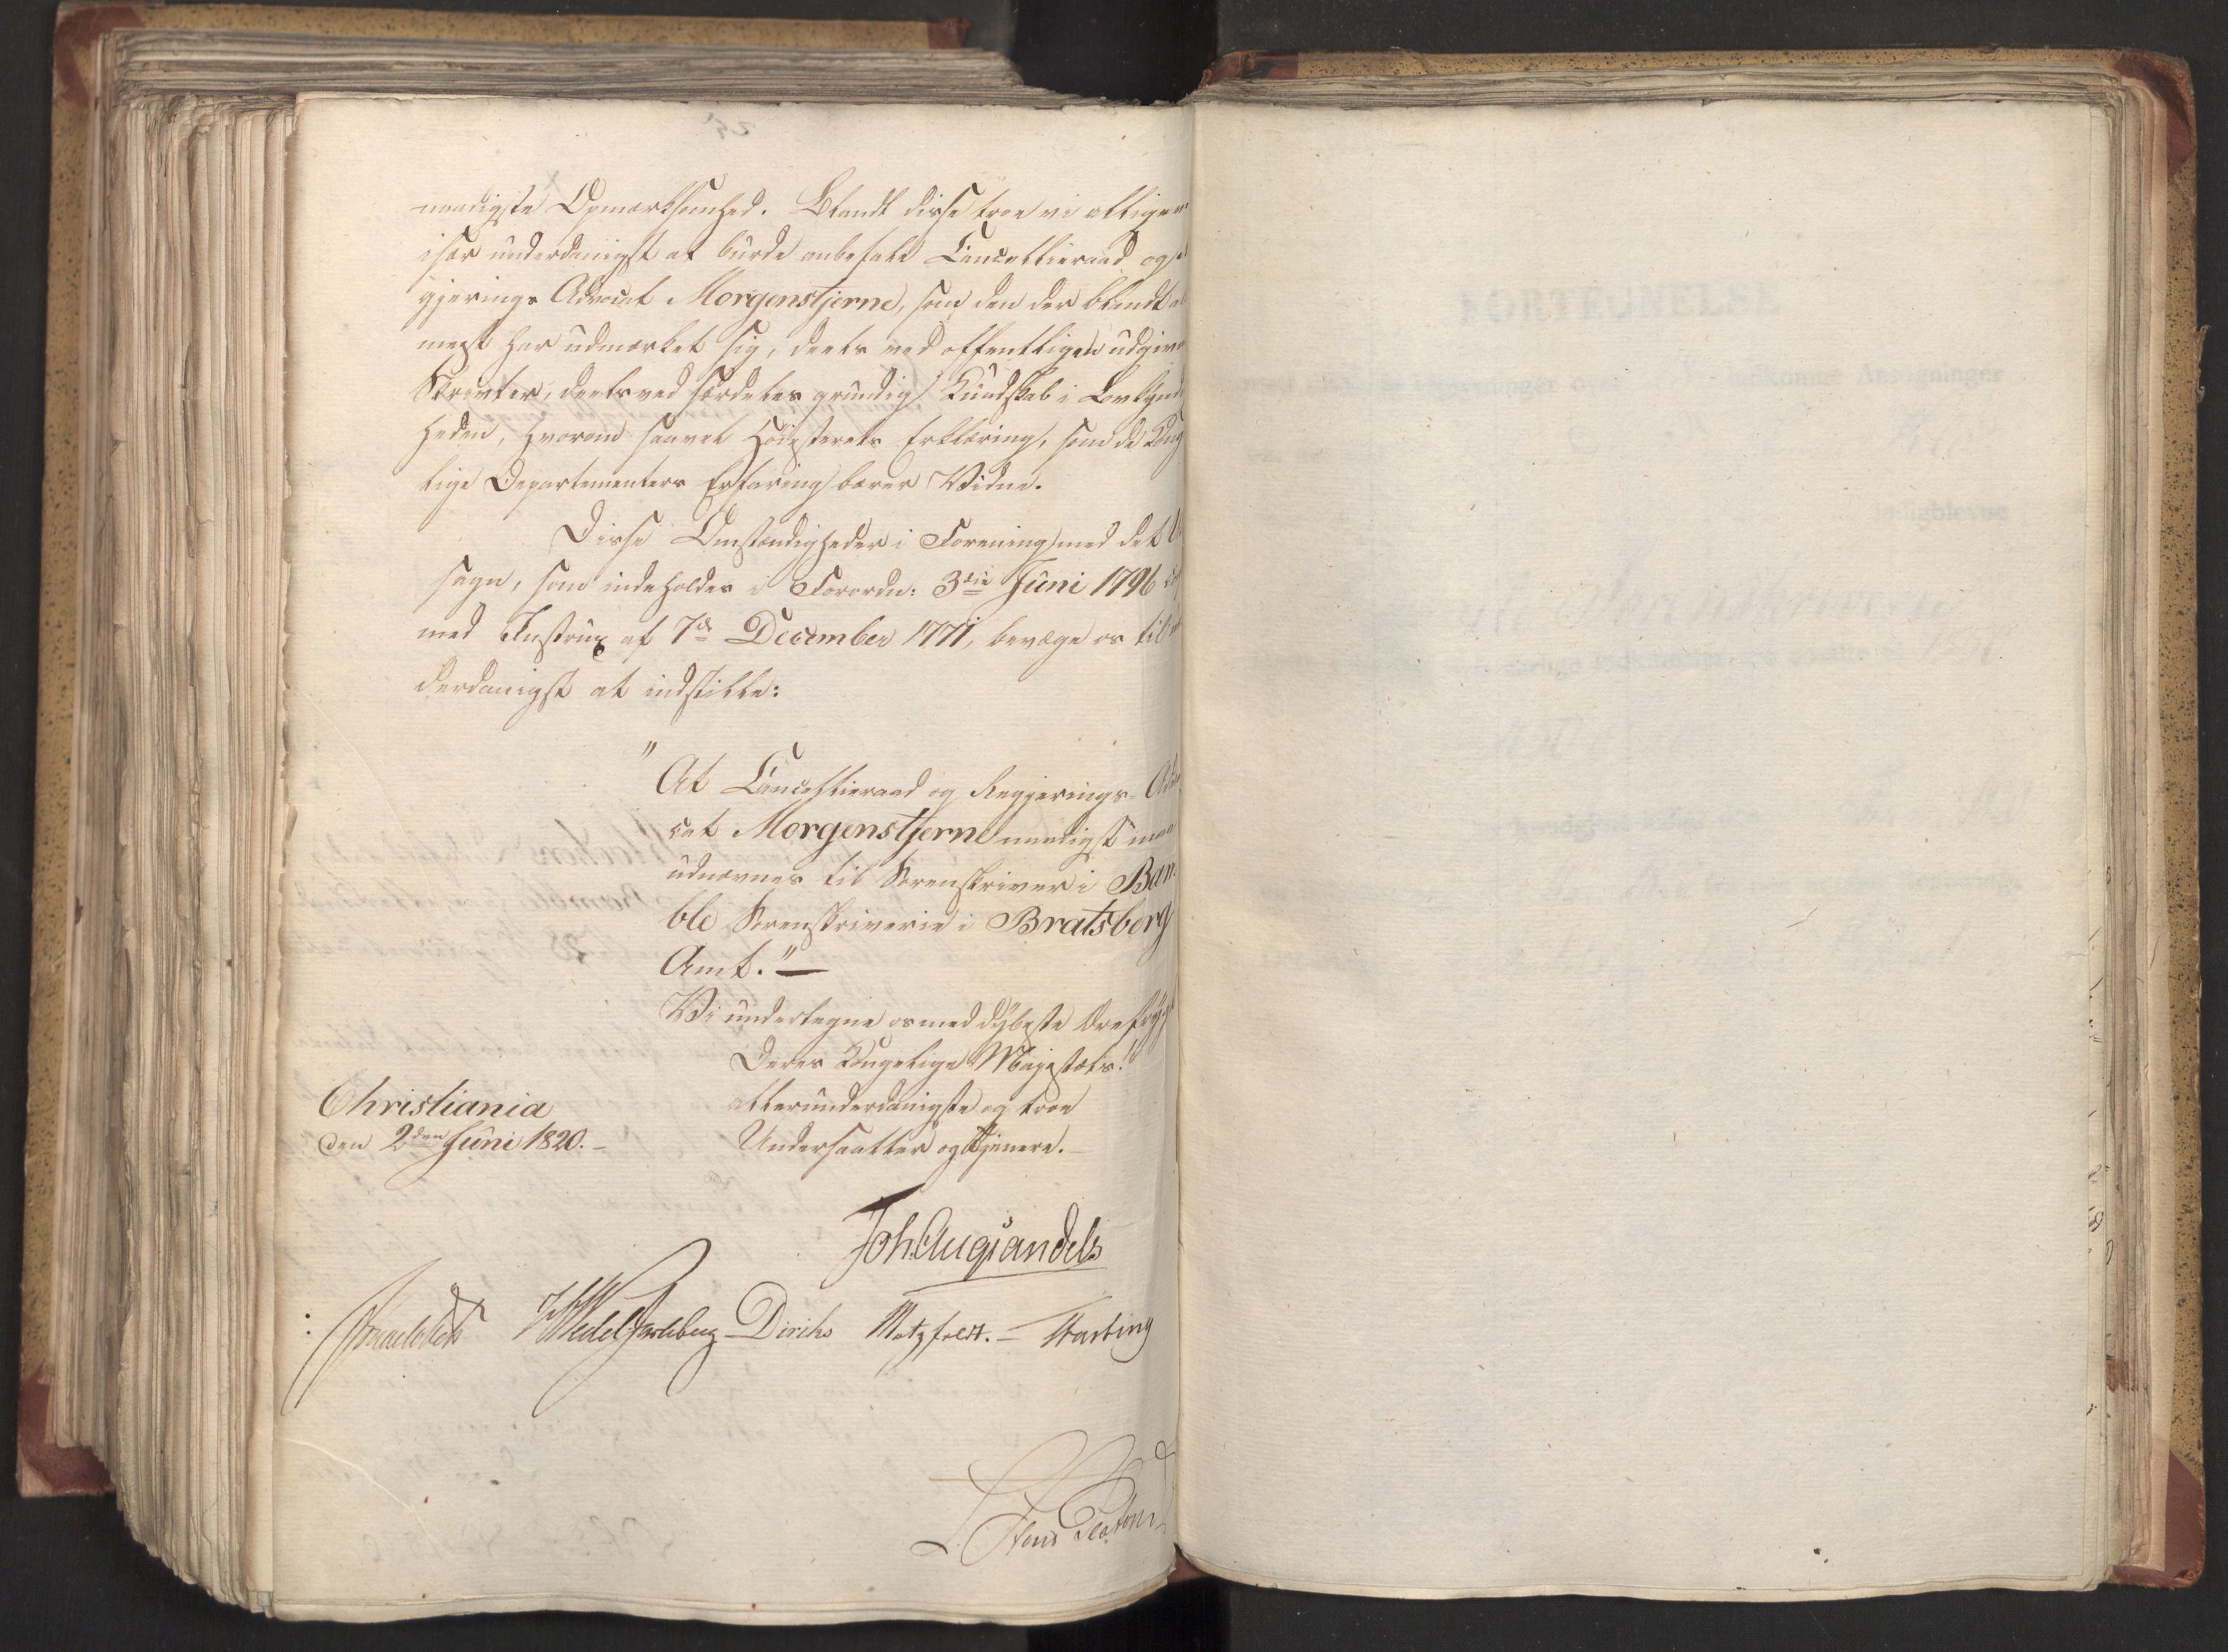 naadigste Opmærksomhed. Blandt disse troe vi alligev
især underdanigst at burde anbefale Cancellieraad og
gjerings Advocat Morgenstjerne, som den der blandt
mest har udmærket sig, deels ved offentligen udgivn
Skrivter, deels ved særdeles grundig Kundskab i Lovkynd
heden, hvorom saavel Höiesterets Erklæring, som de Kong
lige Departementers Erfaring bærer Vidne.
Disse Omstændigheder i Forening med det
sagn, som indeholdes i Forordn: 3die Juni 1796
med Instrux af 7de December 1771, bevæge os til
derdanigst at indstille:
"At Cancellieraad og Regjerings-Advo
cat Morgenstjerne naadigst maa
udnævnes til Sorenskriver i Bam
ble Sorenskriverie i Bratsberg
Amt."—
Vi undertegne os med dybeste Ærefrygt
Deres Kongelige Majestæts!
allerunderdanigste og troe
Undersaatter og Tjenere.
Christiania
den 2den Juni 1820.–
Joh. Aug. Sandels
Wedel Jarlsberg Diriks Motzfeldt.– Fasting